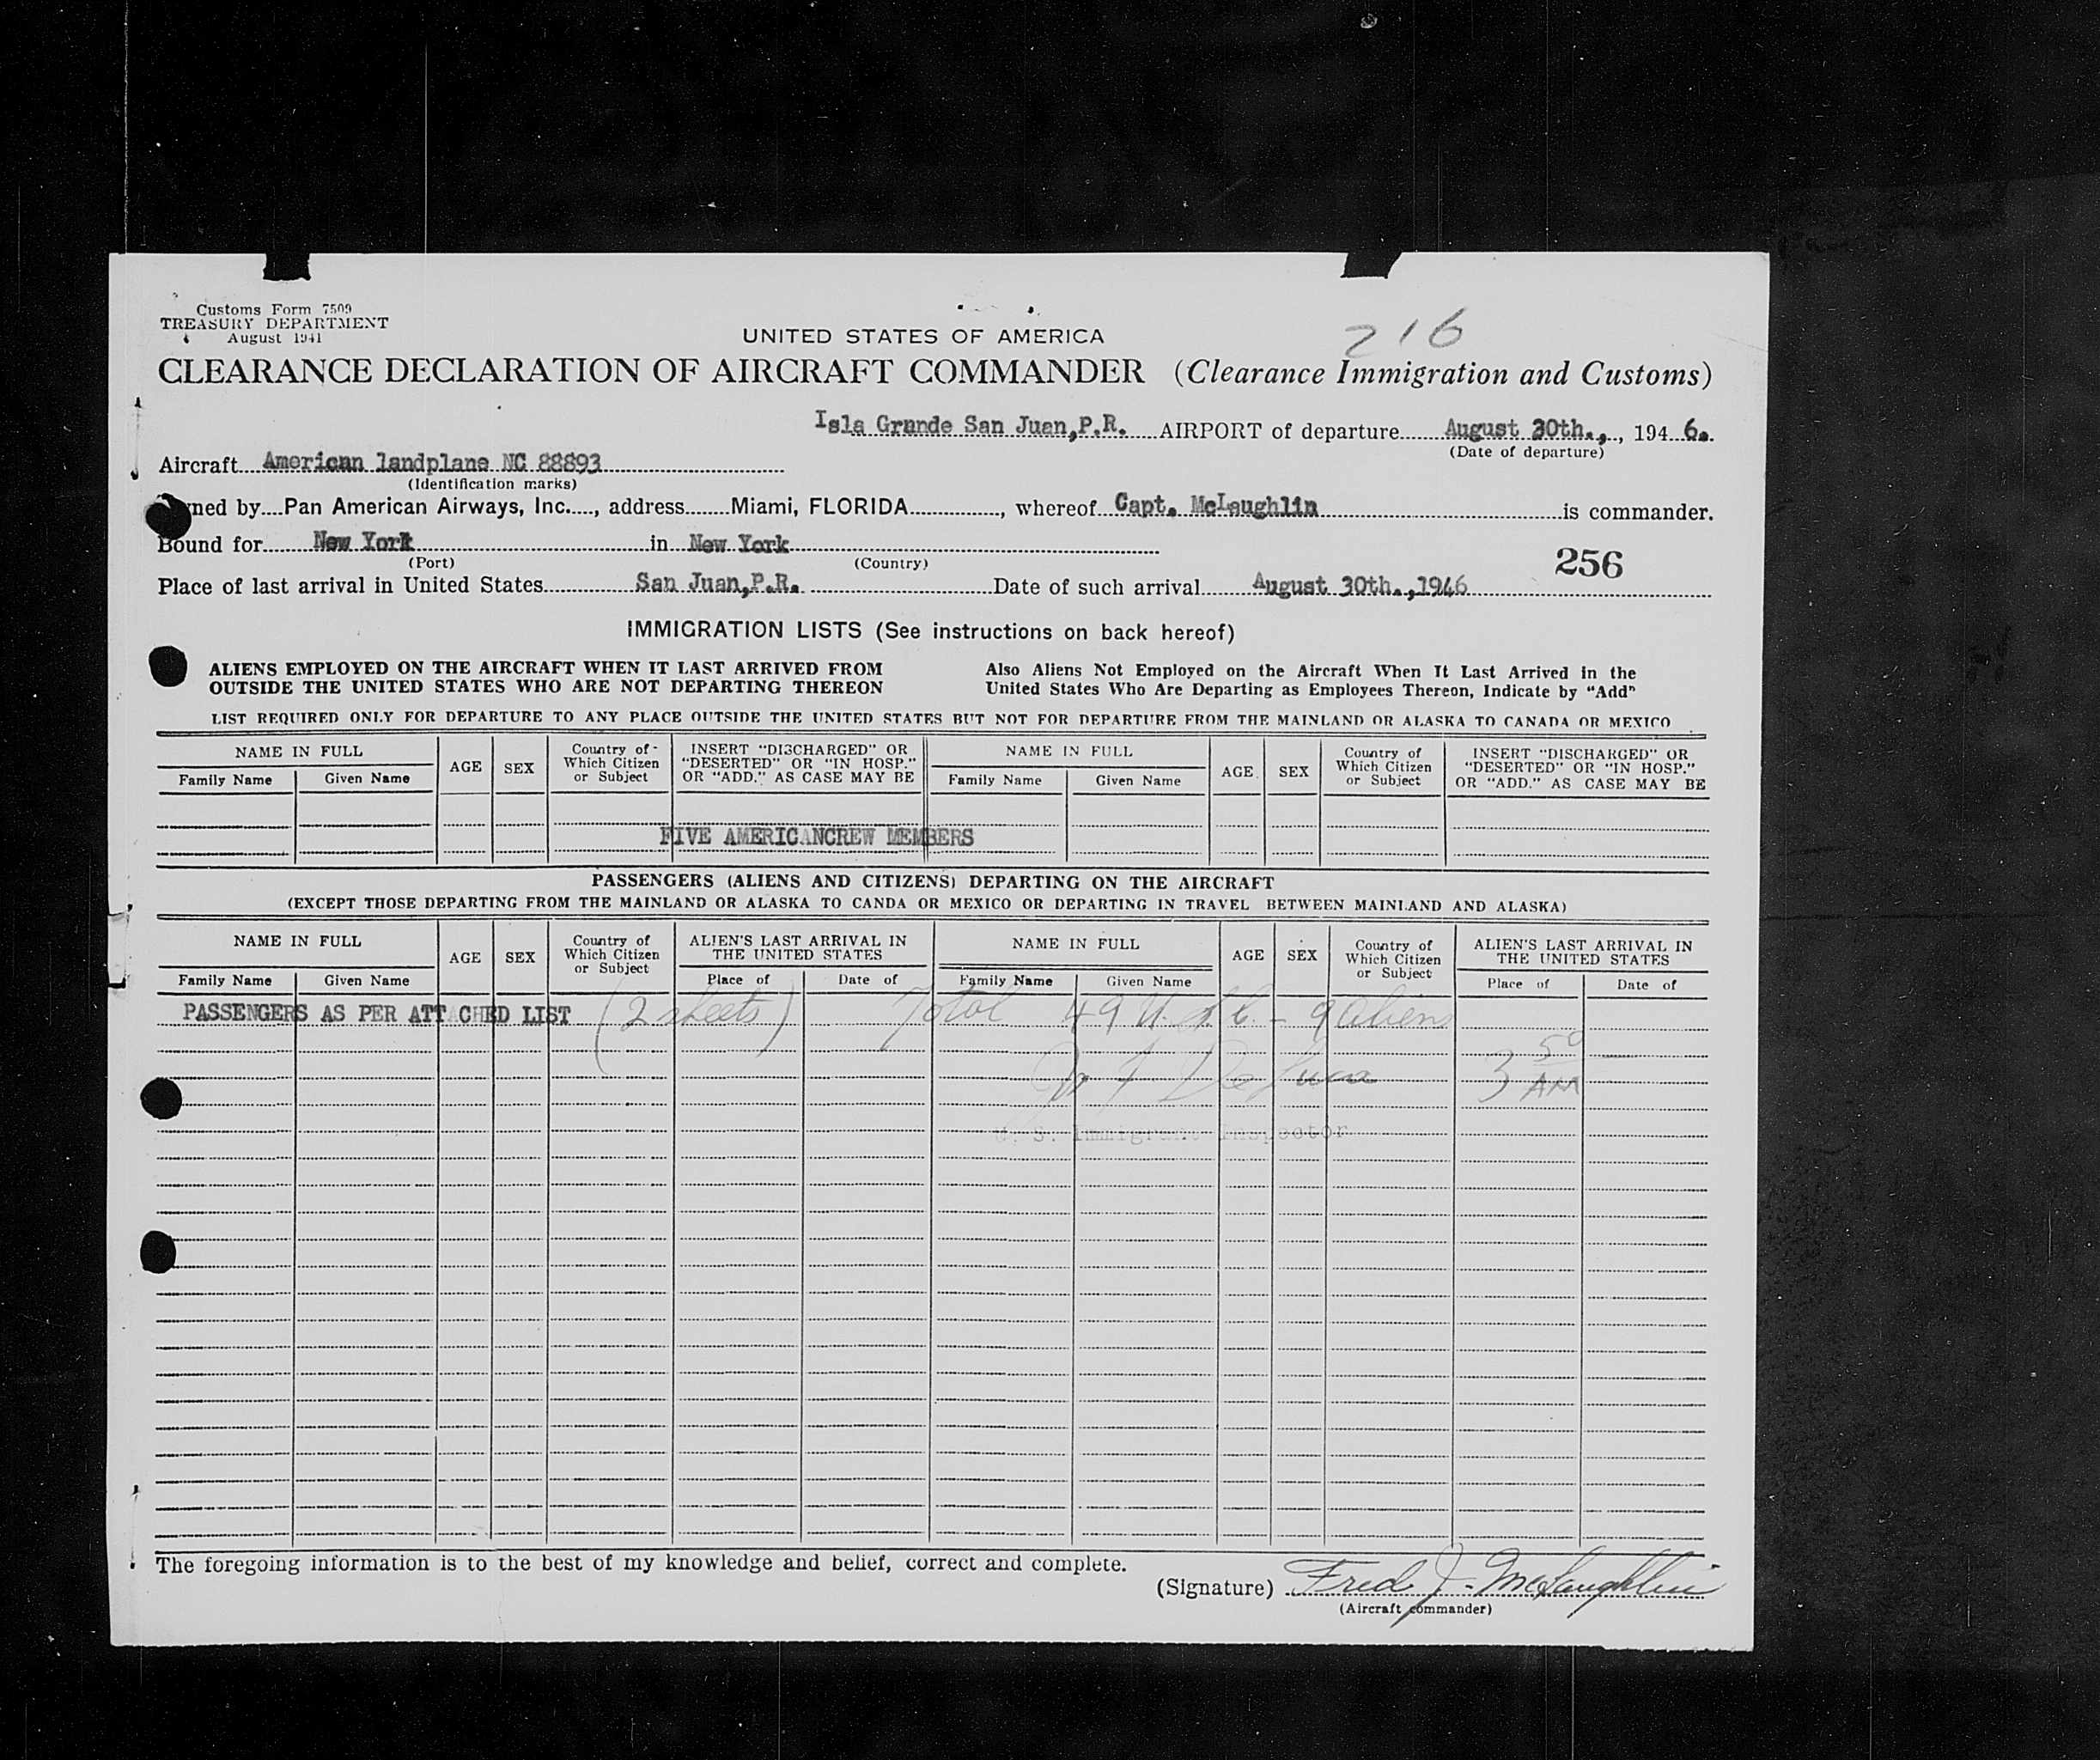 Customs Form 7509
TREASURY DEPARTMENT
August 1941
UNITED STATES OF AMERICA
216
CLEARANCE DECLARATION OF AIRCRAFT COMMANDER (Clearance Immigration and Customs)
Isla Grande San Juan,P.R. AIRPORT of departure August 30th., 1946.
(Date of departure)
Aircraft American landplane NC 88893
(Identification marks)
ned by Pan American Airways, Inc., address Miami, FLORIDA, whereof Capt. McLaughlin is commander.
Bound for New York in New York
(Port) (Country)
256
Place of last arrival in United States San Juan,P.R. Date of such arrival August 30th.,1946
IMMIGRATION LISTS (See instructions on back hereof)
ALIENS EMPLOYED ON THE AIRCRAFT WHEN IT LAST ARRIVED FROM
OUTSIDE THE UNITED STATES WHO ARE NOT DEPARTING THEREON
Also Aliens Not Employed on the Aircraft When It Last Arrived in the
United States Who Are Departing as Employees Thereon, Indicate by "Add"
LIST REQUIRED ONLY FOR DEPARTURE TO ANY PLACE OUTSIDE THE UNITED STATES BUT NOT FOR DEPARTURE FROM THE MAINLAND OR ALASKA TO CANADA OR MEXICO
NAME IN FULL
Family Name Given Name
AGE
SEX
Country of
Which Citizen
or Subject
INSERT "DISCHARGED" OR
"DESERTED" OR "IN HOSP."
OR "ADD." AS CASE MAY BE
NAME IN FULL
Family Name Given Name
AGE
SEX
Country of
Which Citizen
or Subject
INSERT "DISCHARGED" OR
"DESERTED" OR "IN HOSP."
OR "ADD." AS CASE MAY BE
FIVE AMERICANCREW MEMBERS
PASSENGERS (ALIENS AND CITIZENS) DEPARTING ON THE AIRCRAFT
(EXCEPT THOSE DEPARTING FROM THE MAINLAND OR ALASKA TO CANDA OR MEXICO OR DEPARTING IN TRAVEL BETWEEN MAINLAND AND ALASKA)
NAME IN FULL
Family Name Given Name
AGE
SEX
Country of
Which Citizen
or Subject
ALIEN'S LAST ARRIVAL IN
THE UNITED STATES
Place of Date of
NAME IN FULL
Family Name Given Name
AGE
SEX
Country of
Which Citizen
or Subject
ALIEN'S LAST ARRIVAL IN
THE UNITED STATES
Place of Date of
PASSENGERS AS PER ATTACHED LIST (2 sheets) Total 49 U.S.C. - 9 Aliens
3 50 AM
U. S. Immigrant Inspector
The foregoing information is to the best of my knowledge and belief, correct and complete.
(Signature) Fred J. McLaughlin
(Aircraft commander)